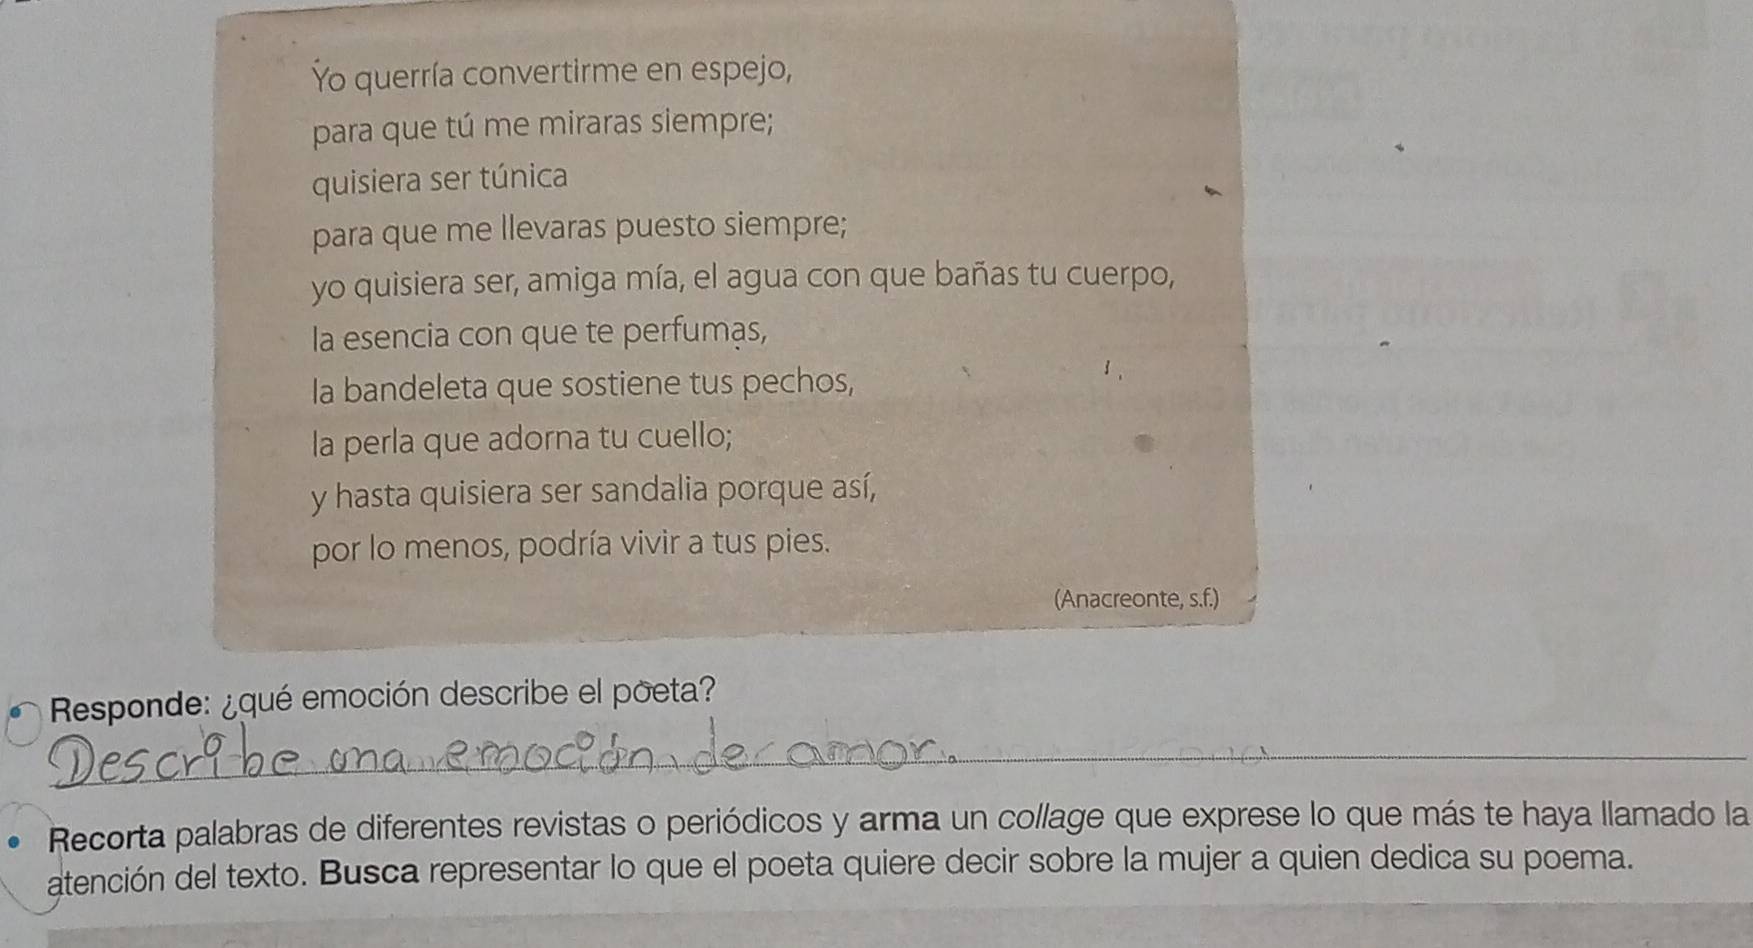 Yo querría convertirme en espejo,
para que tú me miraras siempre;
quisiera ser túnica
para que me llevaras puesto siempre;
yo quisiera ser, amiga mía, el agua con que bañas tu cuerpo,
la esencia con que te perfumas,
la bandeleta que sostiene tus pechos,
la perla que adorna tu cuello;
y hasta quisiera ser sandalia porque así,
por lo menos, podría vivir a tus pies.
(Anacreonte, s.f.)
• Responde: ¿qué emoción describe el poeta?
Describe una emoción de amor.
• Recorta palabras de diferentes revistas o periódicos y arma un collage que exprese lo que más te haya llamado la
atención del texto. Busca representar lo que el poeta quiere decir sobre la mujer a quien dedica su poema.